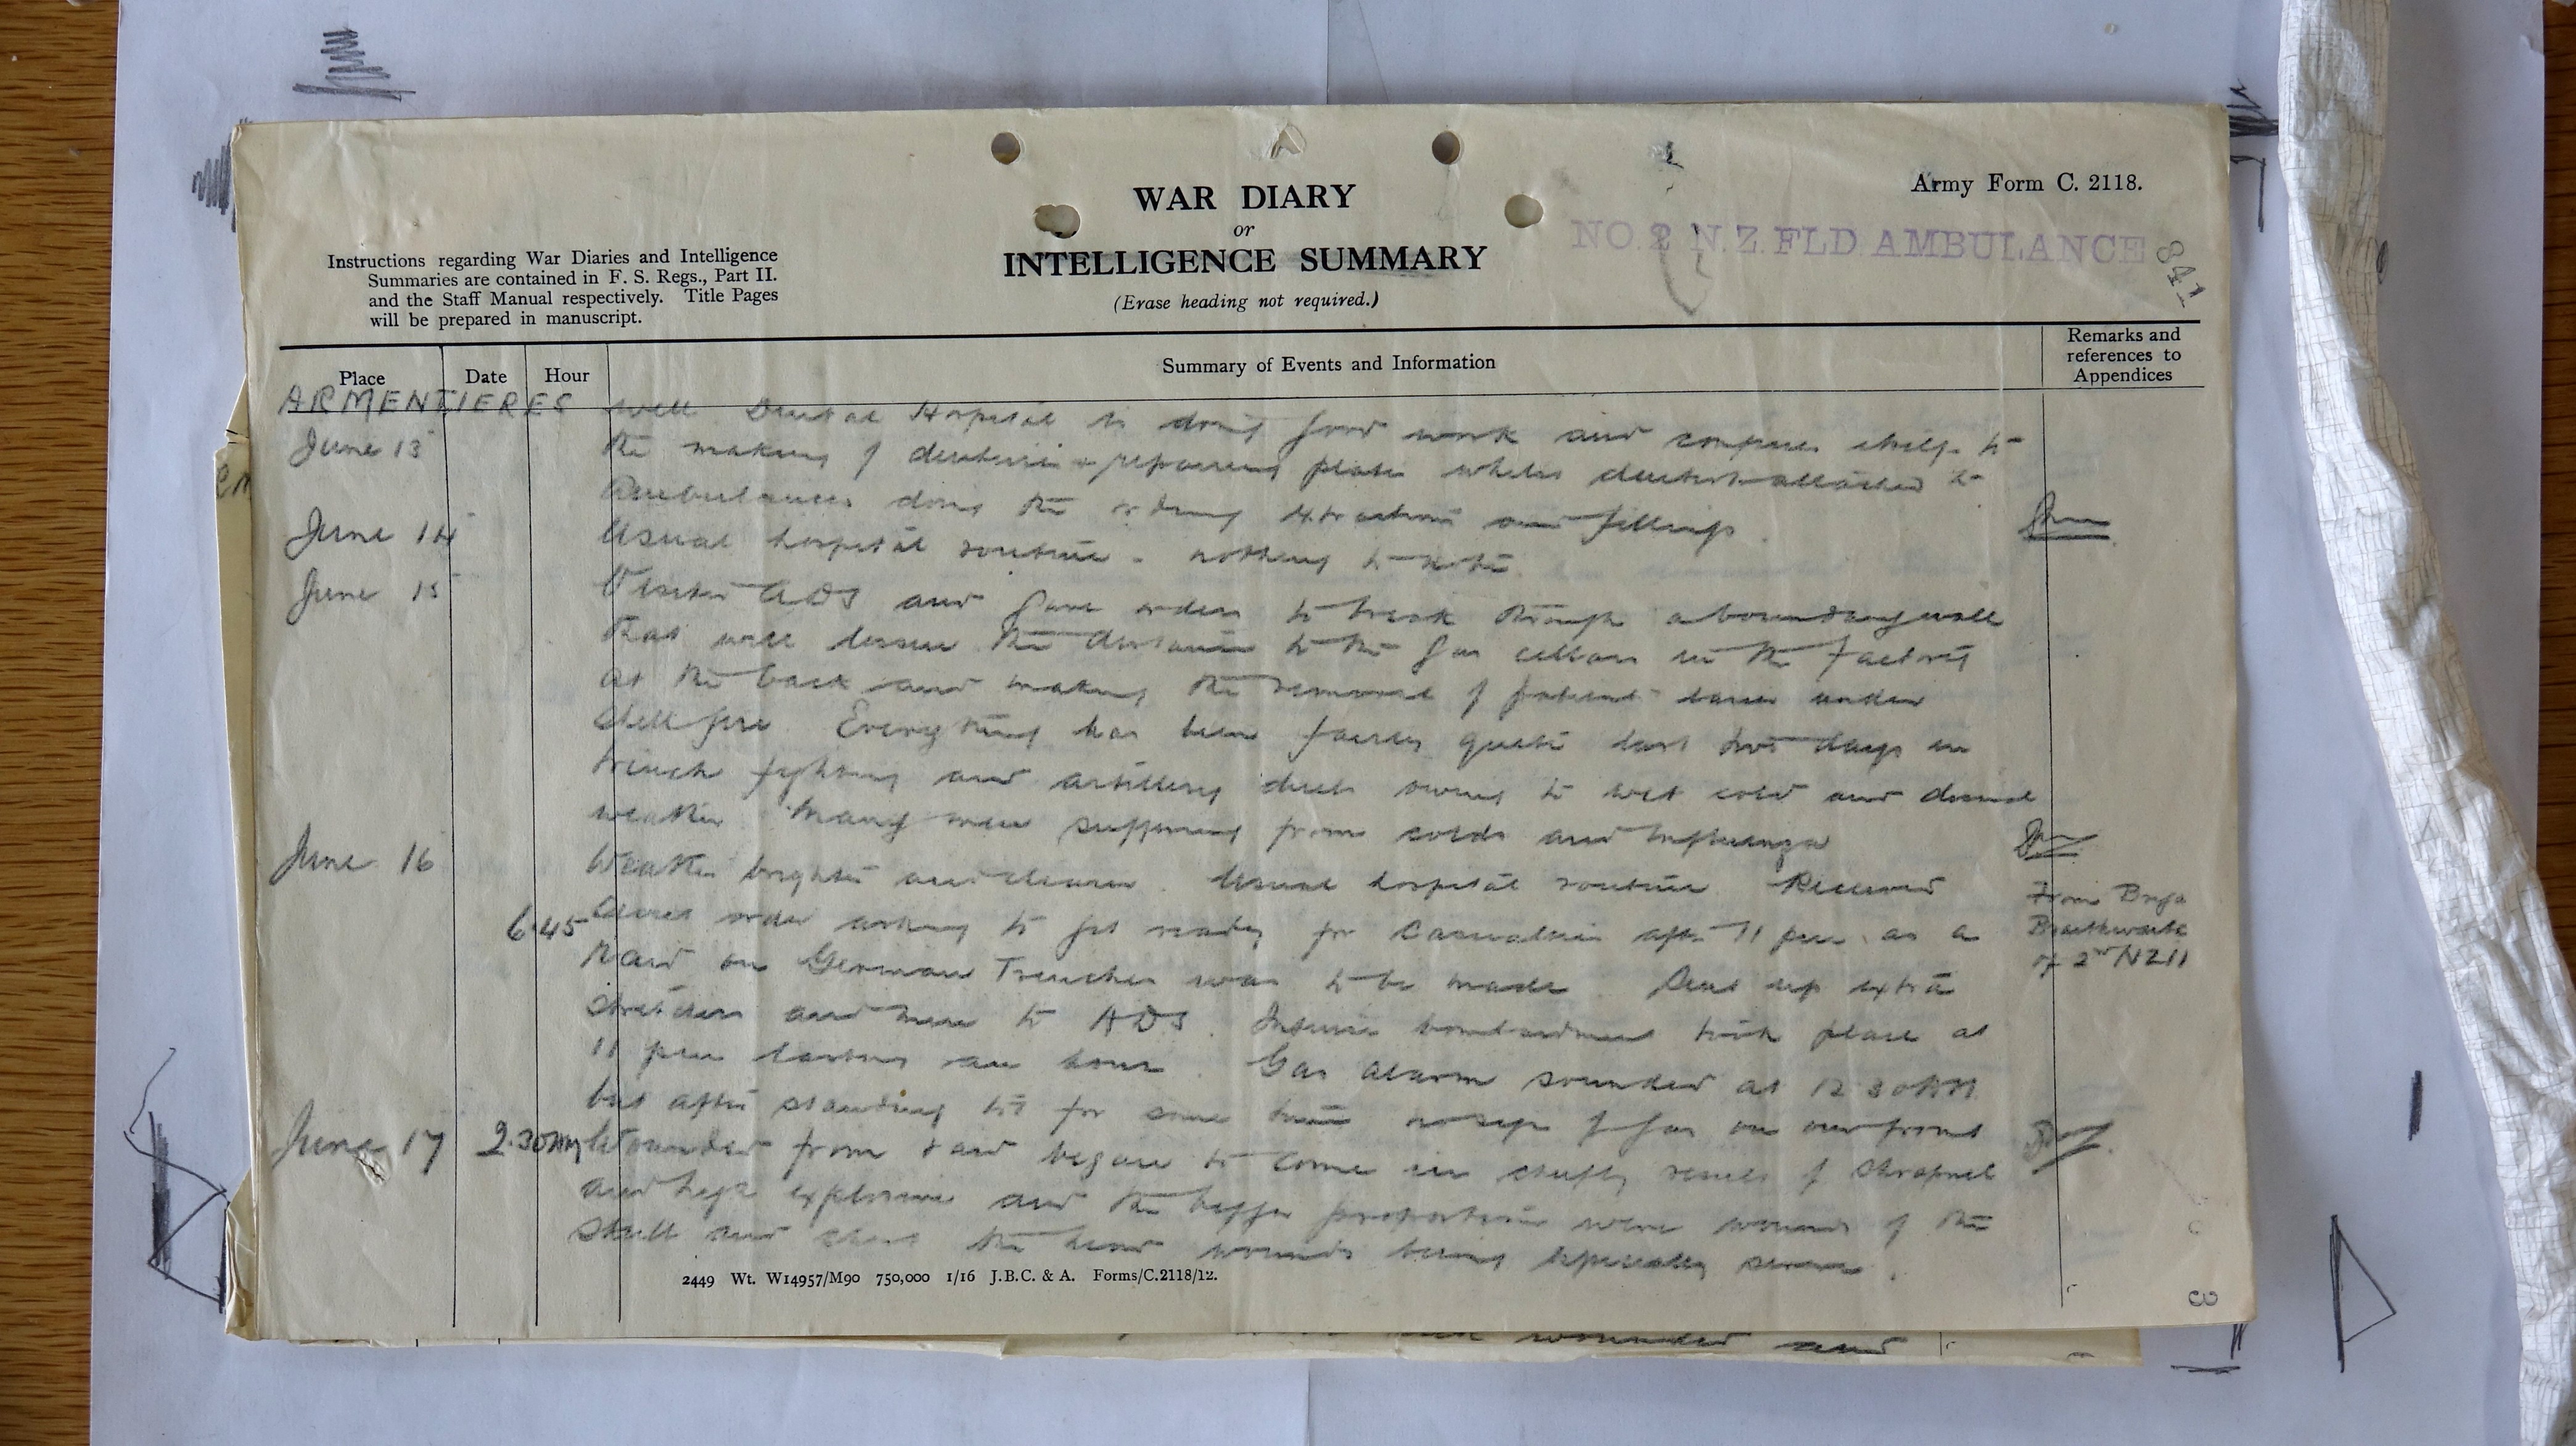 WAR DIARY
or
INTELLIGENCE SUMMARY
(Erase heading not required.)
Army Form C. 2118.
NO. 2 N.Z. FLD AMBULANCE
841
Instructions regarding War Diaries and Intelligence
Summaries are contained in F. S. Regs., Part II.
and the Staff Manual respectively. Title Pages
will be prepared in manuscript.
Place Date Hour Summary of Events and Information Remarks and references to Appendices
ARMENTIERES well Dental Hospital is doing good work and confines itself to
June 13 the making of dentures & repairing plates whilst dentists attached to
Ambulances doing the ordinary extractions and fillings.
June 14 Usual hospital routine - nothing to note.
June 15 Visited ADS and gave orders to break through a boundary wall
that will lessen the distance to the Gas cellars in the factory
at the back and making the removal of patients easier under
shell fire. Everything has been fairly quiet last two days in
trench fighting and artillery duels owing to wet cold and dismal
weather. Many men suffering from colds and influenza
June 16 Weather brighter and clearer. Usual hospital routine. Received
6.45 order asking to get ready for casualties after 11 pm as a
From Brig.
Braithwaite
of 2nd NZ
Raid on German Trenches was to be made. Sent up extra
stretchers and men to ADS. Intense bombardment took place at
11 pm lasting an hour. Gas alarm sounded at 12 30 AM
but after standing to for some time no sign of gas on our front
June 17 2.30 AM Wounded from raid began to come in chiefly result of shrapnel
and high explosive and the bigger proportion were wounds of the
skull and chest the head wounds being especially severe.
2449 Wt. W14957/M90 750,000 1/16 J.B.C. & A. Forms/C.2118/12.
3
wounded and